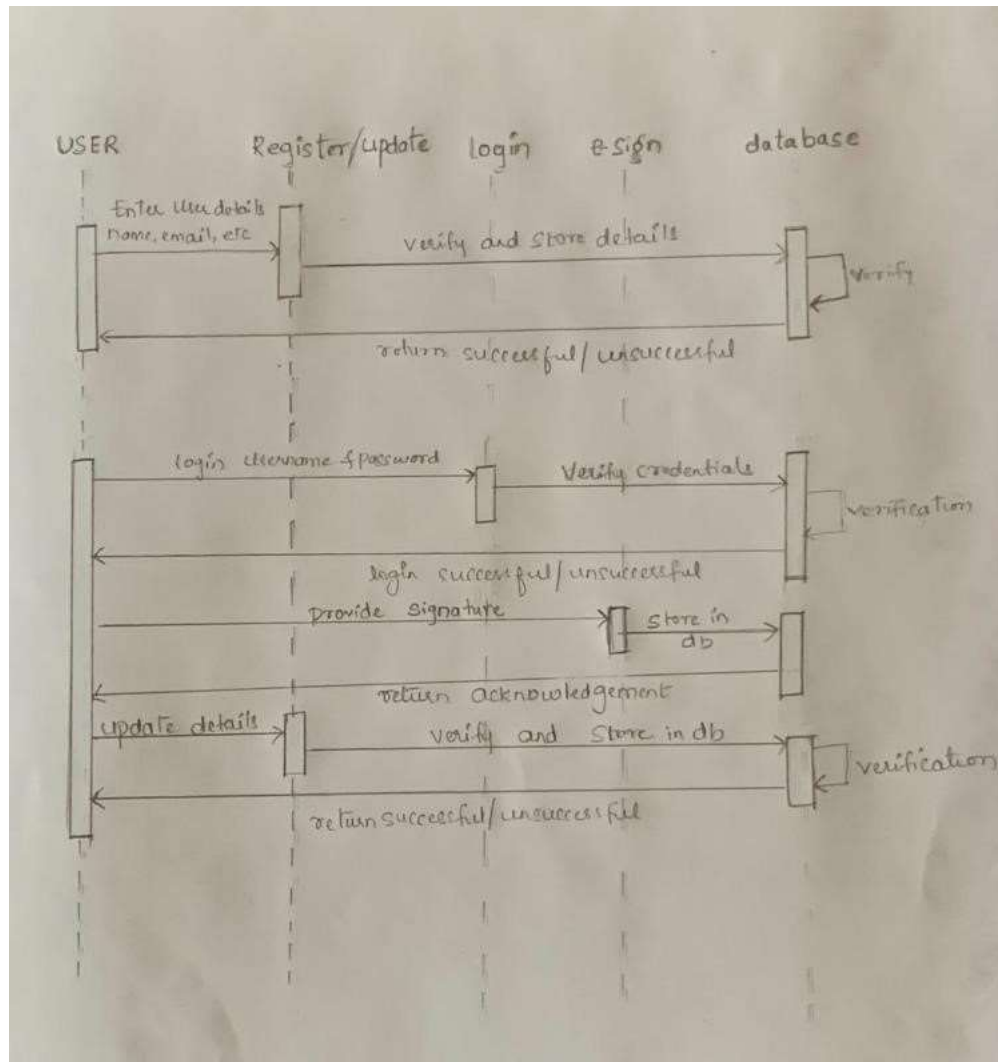 USER Register/update login e-sign database
Enter User details
name, email, etc
verify and store details
verify
return successful/unsuccessful
login username & password
Verify credentials
verification
login successful/unsuccessful
Provide signature
store in
db
return acknowledgement
update details
verify and store in db
verification
return successful/unsuccessful